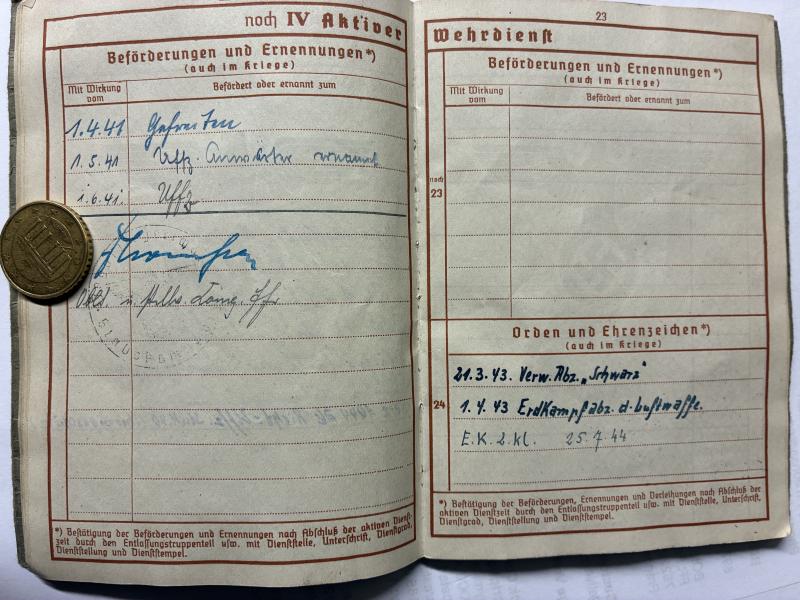 noch IV Aktiver
Beförderungen und Ernennungen*)
(auch im Kriege)
Mit Wirkung vom
Befördert oder ernannt zum
1.4.41 Gefreiten
1.5.41 Uffz. Anwärter ernannt
1.6.41. Uffz
*) Bestätigung der Beförderungen und Ernennungen nach Abschluß der aktiven Dienst-
zeit durch den Entlassungstruppenteil usw. mit Dienststelle, Unterschrift, Dienstgrad,
Dienststellung und Dienststempel.
23
Wehrdienst
Beförderungen und Ernennungen*)
(auch im Kriege)
Mit Wirkung vom
Befördert oder ernannt zum
noch
23
Orden und Ehrenzeichen*)
(auch im Kriege)
21.3.43. Verw. Abz. „Schwarz"
24
1.4.43 Erdkampfabz. d. Luftwaffe.
E.K.2.kl. 25.7.44
*) Bestätigung der Beförderungen, Ernennungen und Verleihungen nach Abschluß der
aktiven Dienstzeit durch den Entlassungstruppenteil usw. mit Dienststelle, Unterschrift,
Dienstgrad, Dienststellung und Dienststempel.